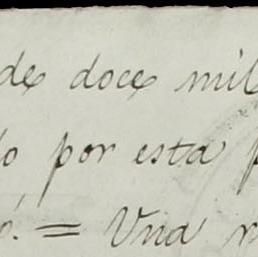 de doce mil
o por esta p
o. = Una